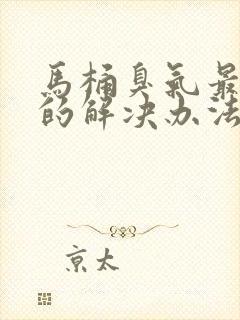 馬桶臭氣最
的解决办法
京太